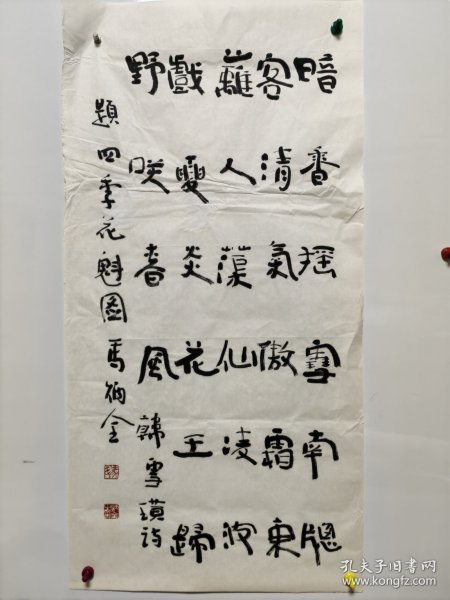 暗香搖雪南牕
客清氣傲霜東
蘺人蕖仙凌波
戲夏炎花王歸
野咲春風
韓雪璜詩
題四季花魁圖馬炳全
孔夫子旧书网
www.kongfz.com